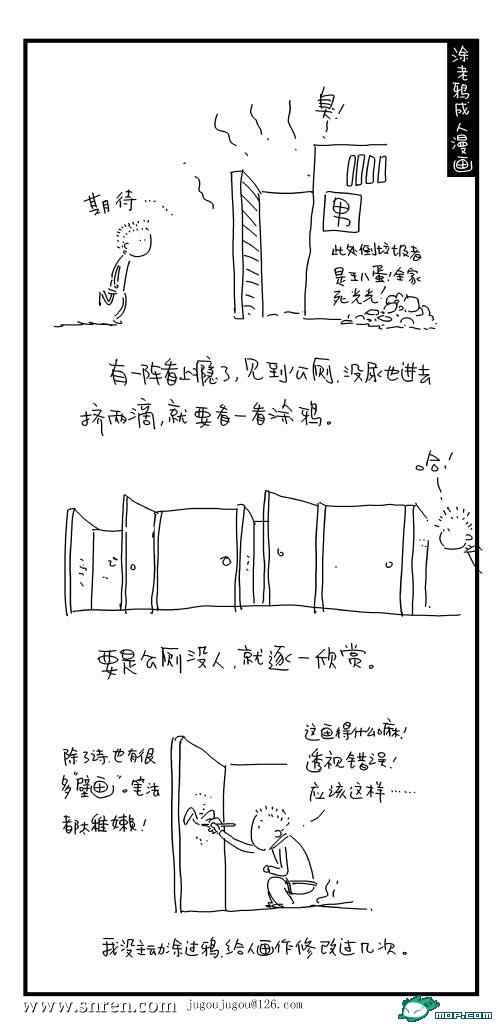 涂老鸦成人漫画
臭!
期待……
男
此处倒垃圾者
是王八蛋!全家
死光光!
有一阵看上瘾了,见到公厕,没尿也进去
挤两滴,就要看一看涂鸦。
哈!
要是公厕没人,就逐一欣赏。
除了诗,也有很
多“壁画”。笔法
都太稚嫩!
这画得什么嘛!
透视错误!
应该这样……
我没主动涂过鸦,给人画作修改过几次。
www.snren.com jugoujugou@126.com
MOP.COM